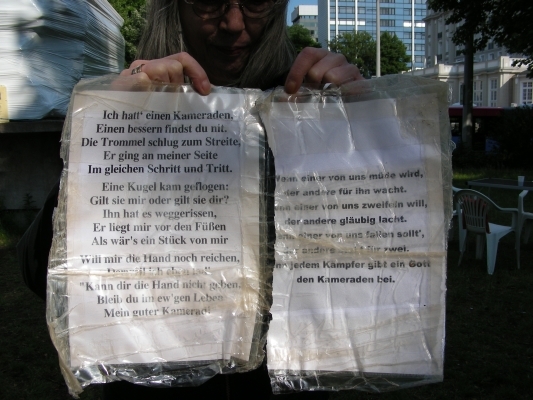 Ich hatt' einen Kameraden,
Einen bessern findst du nit.
Die Trommel schlug zum Streite,
Er ging an meiner Seite
Im gleichen Schritt und Tritt.
Eine Kugel kam geflogen:
Gilt sie mir oder gilt sie dir?
Ihn hat es weggerissen,
Er liegt mir vor den Füßen
Als wär's ein Stück von mir
Will mir die Hand noch reichen,
"Kann dir die Hand nicht geben,
Bleib du im ew'gen Leben
Mein guter Kamerad!
einer von uns müde wird,
der andere für ihn wacht.
einer von uns zweifeln will,
der andere gläubig lacht.
einer von uns fallen sollt',
andere für zwei.
jedem Kämpfer gibt ein Gott
den Kameraden bei.